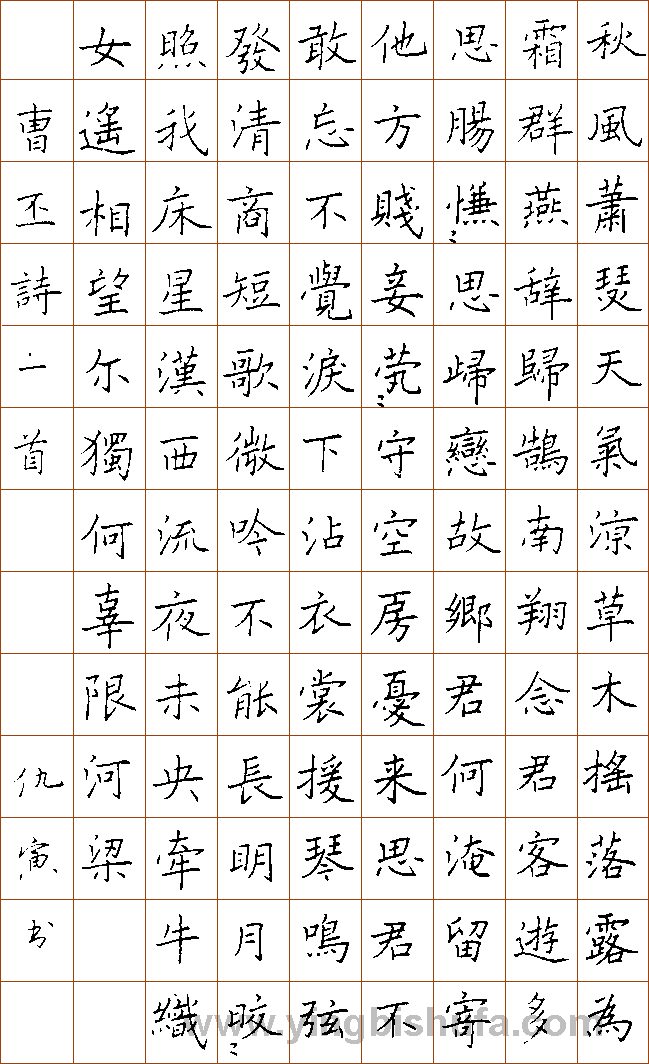 秋風蕭瑟天氣涼草木搖落露為
霜群燕辞歸鵠南翔念君客遊多
思腸慊〻思歸戀故鄉君何淹留寄
他方賤妾茕〻守空房憂来思君不
敢忘不覺淚下沾衣裳援琴鳴弦
發清商短歌微吟不能長明月皎〻
照我床星漢西流夜未央牽牛織
女遙相望尔獨何辜限河梁
曹丕詩一首
仇寅书
www.yingbishufa.com